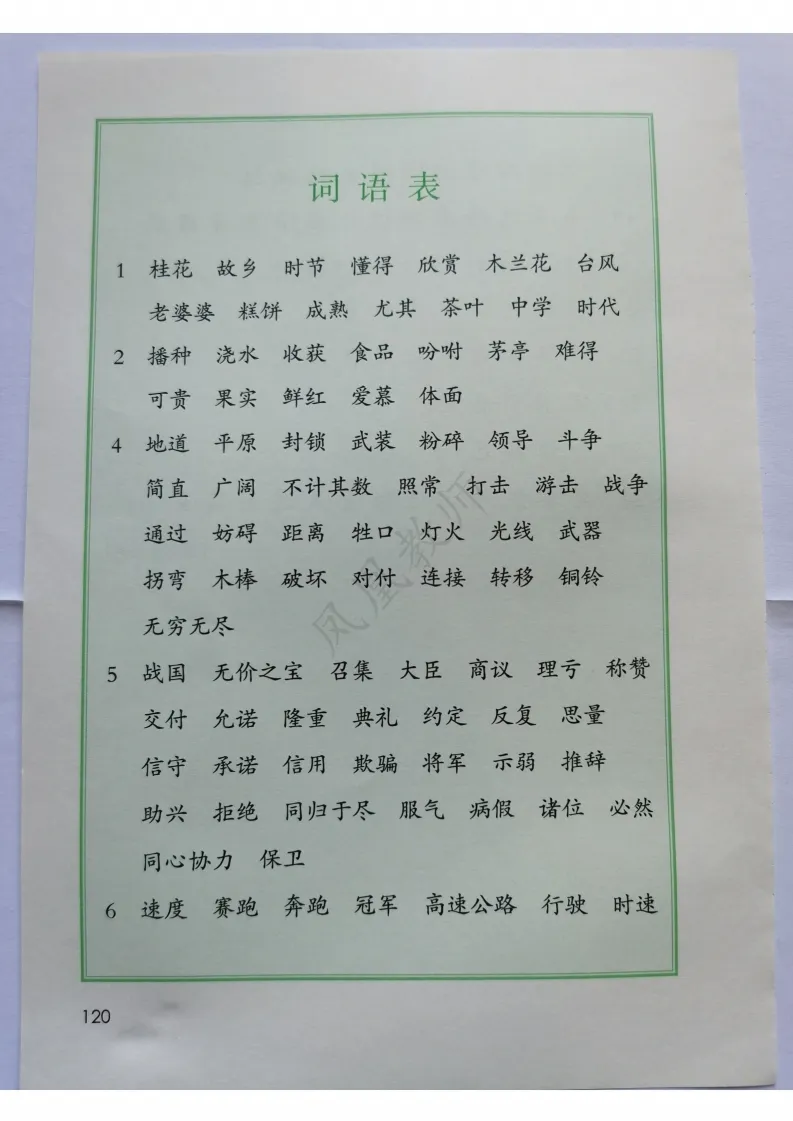 词语表
1 桂花 故乡 时节 懂得 欣赏 木兰花 台风
老婆婆 糕饼 成熟 尤其 茶叶 中学 时代
2 播种 浇水 收获 食品 吩咐 茅亭 难得
可贵 果实 鲜红 爱慕 体面
4 地道 平原 封锁 武装 粉碎 领导 斗争
简直 广阔 不计其数 照常 打击 游击 战争
通过 妨碍 距离 牲口 灯火 光线 武器
拐弯 木棒 破坏 对付 连接 转移 铜铃
无穷无尽
5 战国 无价之宝 召集 大臣 商议 理亏 称赞
交付 允诺 隆重 典礼 约定 反复 思量
信守 承诺 信用 欺骗 将军 示弱 推辞
助兴 拒绝 同归于尽 服气 病假 诸位 必然
同心协力 保卫
6 速度 赛跑 奔跑 冠军 高速公路 行驶 时速
120
凤凰教师